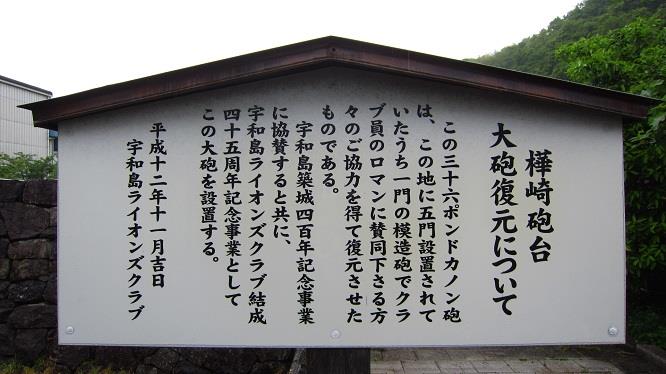 樺崎砲台
大砲復元について
この三十六ポンドカノン砲
は、この地に五門設置されて
いたうち一門の模造砲でクラ
ブ員のロマンに賛同下さる方
々のご協力を得て復元させた
ものである。
宇和島築城四百年記念事業
に協賛すると共に、
宇和島ライオンズクラブ結成
四十五周年記念事業として
この大砲を設置する。
平成十二年十一月吉日
宇和島ライオンズクラブ